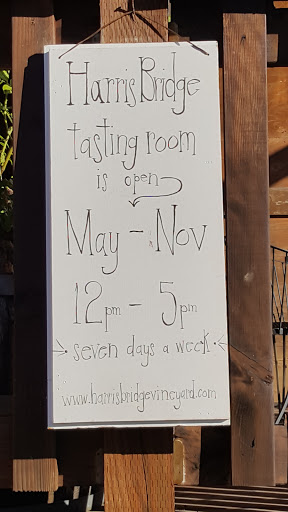 Harris Bridge
tasting room
is open
May - Nov
12pm - 5pm
seven days a week
www.harrisbridgevineyard.com